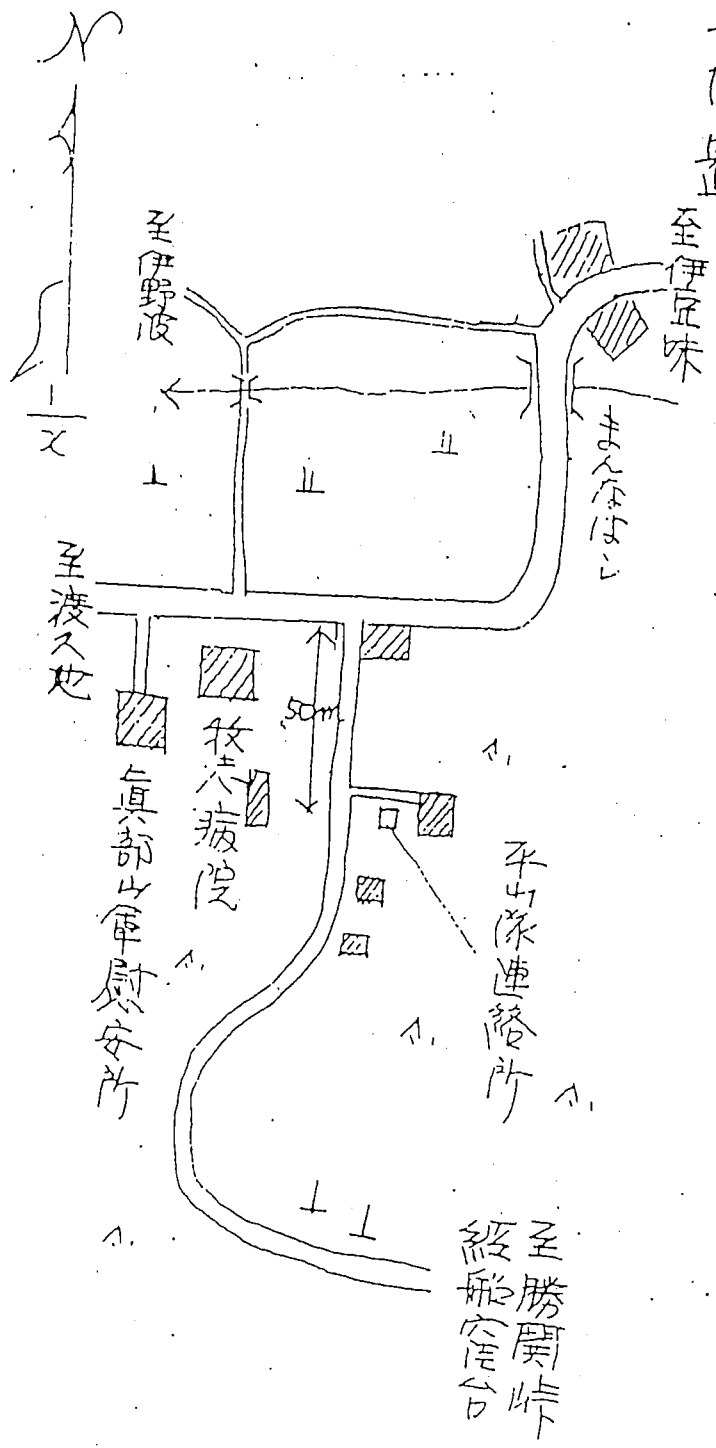 N
1/x
至伊豆味
至伊野波
まんなはし
至渡久地
50m
牧港病院
真部山軍慰安所
平山隊連絡所
至勝関峠
経船窪台